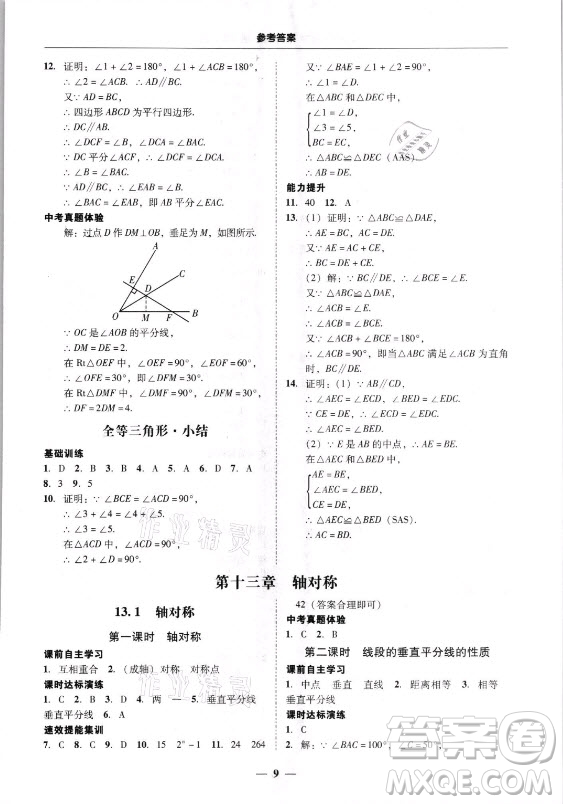 参考答案
12. 证明：∵ ∠1＋∠2＝180°，∠1＋∠ACB＝180°，
∴ ∠2＝∠ACB. ∴ AD∥BC.
又∵ AD＝BC，
∴ 四边形 ABCD 为平行四边形.
∴ DC∥AB.
∴ ∠DCF＝∠B，∠ACD＝∠BAC.
∵ DC 平分∠ACF，∴ ∠DCF＝∠ACD.
∴ ∠B＝∠BAC.
∵ ∠B＝∠ACF，∴ ∠BAC＝∠ACF，即 AB∥CF.
中考真题体验
解：过点 D 作 DM⊥OB，垂足为 M，如图所示.
A
E
C
D
O
M
F
B
∵ OC 是∠AOB 的平分线，
∴ DM＝DE＝2.
在 Rt△OEF 中，∠OEF＝90°，∠EOF＝60°，
∴ ∠OFE＝30°，即∠DFM＝30°.
在 Rt△DMF 中，∠DMF＝90°，∠DFM＝30°，
∴ DF＝2DM＝4.
全等三角形·小结
基础训练
1. D 2. B 3. B 4. A 5. D 6. D 7. A
8. 3 9. 5
10. 证明：∵ ∠BCE＝∠ACD＝90°，
∴ ∠3＋∠4＝∠4＋∠5.
∴ ∠3＝∠5.
在△ACD 中，∠ACD＝90°，
∴ ∠2＋∠D＝90°.
∵ ∠BAE＝∠1＋∠2＝90°，
∴ ∠1＝∠D.
在△ABC 和△DEC 中，
∠1＝∠D，
∠3＝∠5，
BC＝EC，
∴ △ABC≌△DEC (AAS).
能力提升
11. 40 12. A
13. (1) 证明：∵ △ABC≌△DAE，
∴ AE＝BC，AC＝DE.
又∵ AE＝AC＋CE，
∴ BC＝DE＋CE.
(2) 解：∵ BC∥DE，∴ ∠BCE＝∠E.
又∵ △ABC≌△DAE，
∴ ∠ACB＝∠E.
∴ ∠ACB＝∠BCE.
又∵ ∠ACB＋∠BCE＝180°，
∴ ∠ACB＝90°，即当△ABC 满足∠ACB 为直角
时，BC∥DE.
14. 证明：(1) ∵ AB∥CD，
∴ ∠AEC＝∠ECD，∠BED＝∠CDE.
∵ CE＝DE，∴ ∠ECD＝∠CDE.
∴ ∠AEC＝∠BED.
(2) ∵ E 是 AB 的中点，∴ AE＝BE.
在△AEC 和△BED 中，
AE＝BE，
∠AEC＝∠BED，
CE＝DE，
∴ △AEC≌△BED (SAS).
∴ AC＝BD.
第十三章 轴对称
13.1 轴对称
第一课时 轴对称
课前自主学习
1. 互相重合 2. (成轴) 对称 对称点
课时达标演练
1. C 2. B 3. D 4. 两 一 5. 垂直平分线
垂直平分线 6. B
速效提能集训
7. C 8. C 9. D 10. 15 2ⁿ－1 11. 24 264
42（答案合理即可）
中考真题体验
1. C 2. B
第二课时 线段的垂直平分线的性质
课前自主学习
1. 中点 垂直 直线 2. 距离相等 3. 相等
垂直平分线
课时达标演练
1. C
2. 解：∵ ∠BAC＝100°，∠C＝50°，
9
作业精灵
作业精灵
答案圈
MXQE.COM